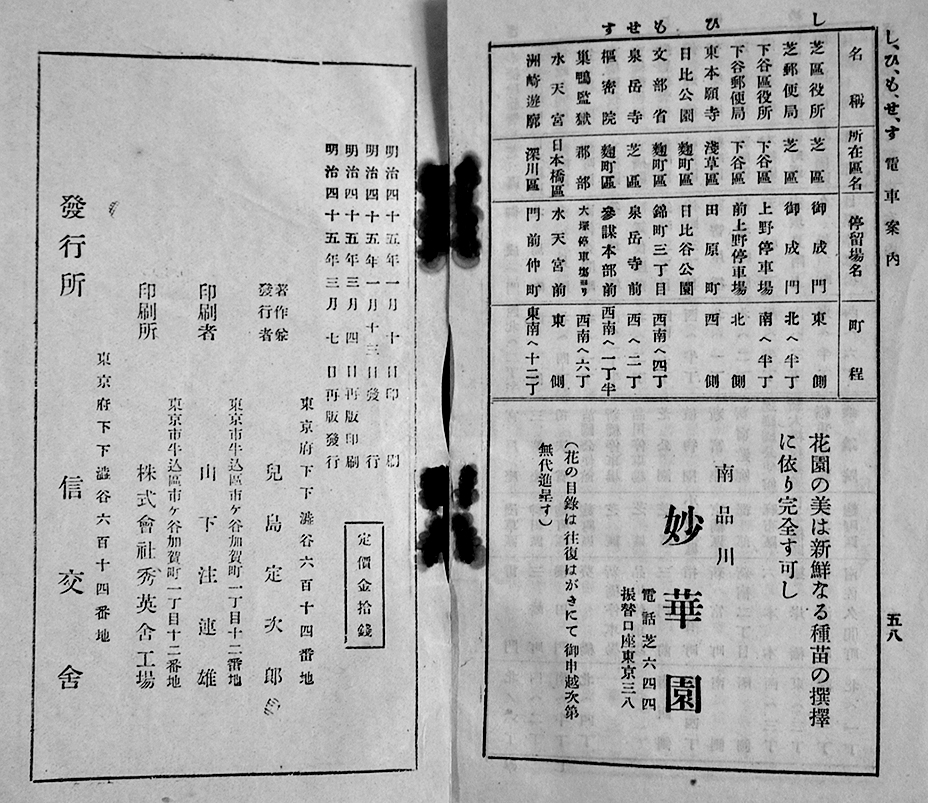 し、ひ、も、せ、す 電車案内
五八
名稱 所在區名 停留場名 町程
し
芝區役所 芝區 御成門 東側
芝郵便局 芝區 御成門 北へ半丁
下谷區役所 下谷區 上野停車場 南へ半丁
下谷郵便局 下谷區 前上野停車場 北側
ひ
東本願寺 淺草區 田原町 西側
日比公園 麴町區 日比谷公園
も
文部省 麴町區 錦町三丁目 西南へ四丁
せ
泉岳寺 芝區 泉岳寺前 西へ二丁
す
樞密院 麴町區 參謀本部前 西南へ一丁半
巢鴨監獄 郡部 大塚停車塲ヨリ 西南へ六丁
水天宮 日本橋區 水天宮前 東側
洲崎遊廓 深川區 門前仲町 東南へ十二丁
花園の美は新鮮なる種苗の撰擇
に依り完全す可し
南品川
妙華園
電話芝六四四
振替口座東京三八
(花の目錄は往復はがきにて御申越次第
無代進呈す)
明治四十五年一月十日印刷
明治四十五年一月十三日發行
明治四十五年三月四日再版印刷
明治四十五年三月七日再版發行
定價金拾錢
東京府下下澁谷六百十四番地
著作兼
發行者
兒島定次郎
東京市牛込區市ヶ谷加賀町一丁目十二番地
印刷者 山下注連雄
東京市牛込區市ヶ谷加賀町一丁目十二番地
印刷所 株式會社秀英舍工場
東京府下下澁谷六百十四番地
發行所 信交舍